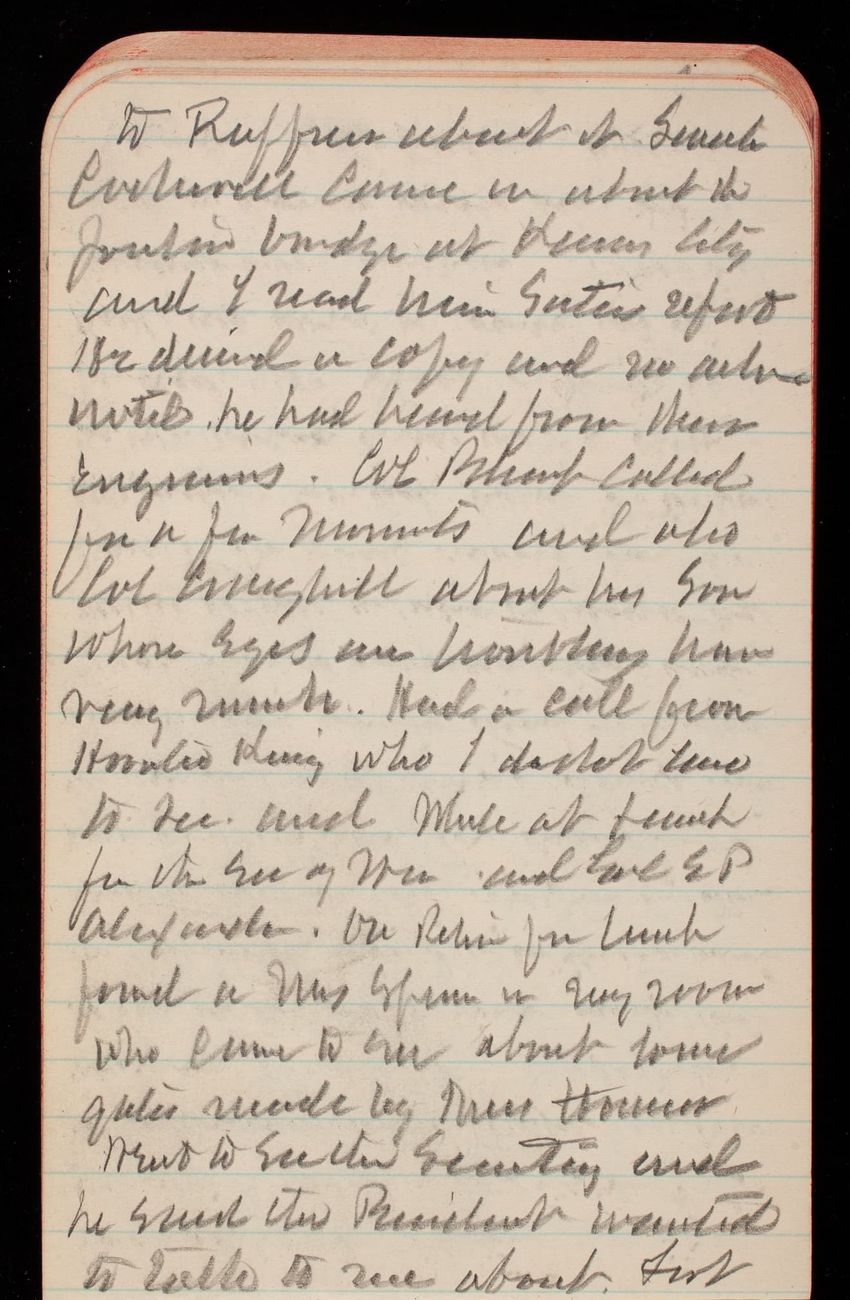 to Ruffner about it Senator
Cockrell came in about the
pontoon bridge at Kansas City
and I read him Suter's report
He desired a copy and no action
until he had heard from these
Engineers. Col called
for a few moments and also
Col Coneghill about his son
whose Eyes are troubling him
very much. Had a call from
Horatio King who I do not have
to see. and While at lunch
for the Sec of War and Gnl E P
Alexander. On Return from lunch
found a Mrs in my room
who came to see about some
gates made by
Went to see the Secretary and
he said the President wanted
to talk to me about. Fort